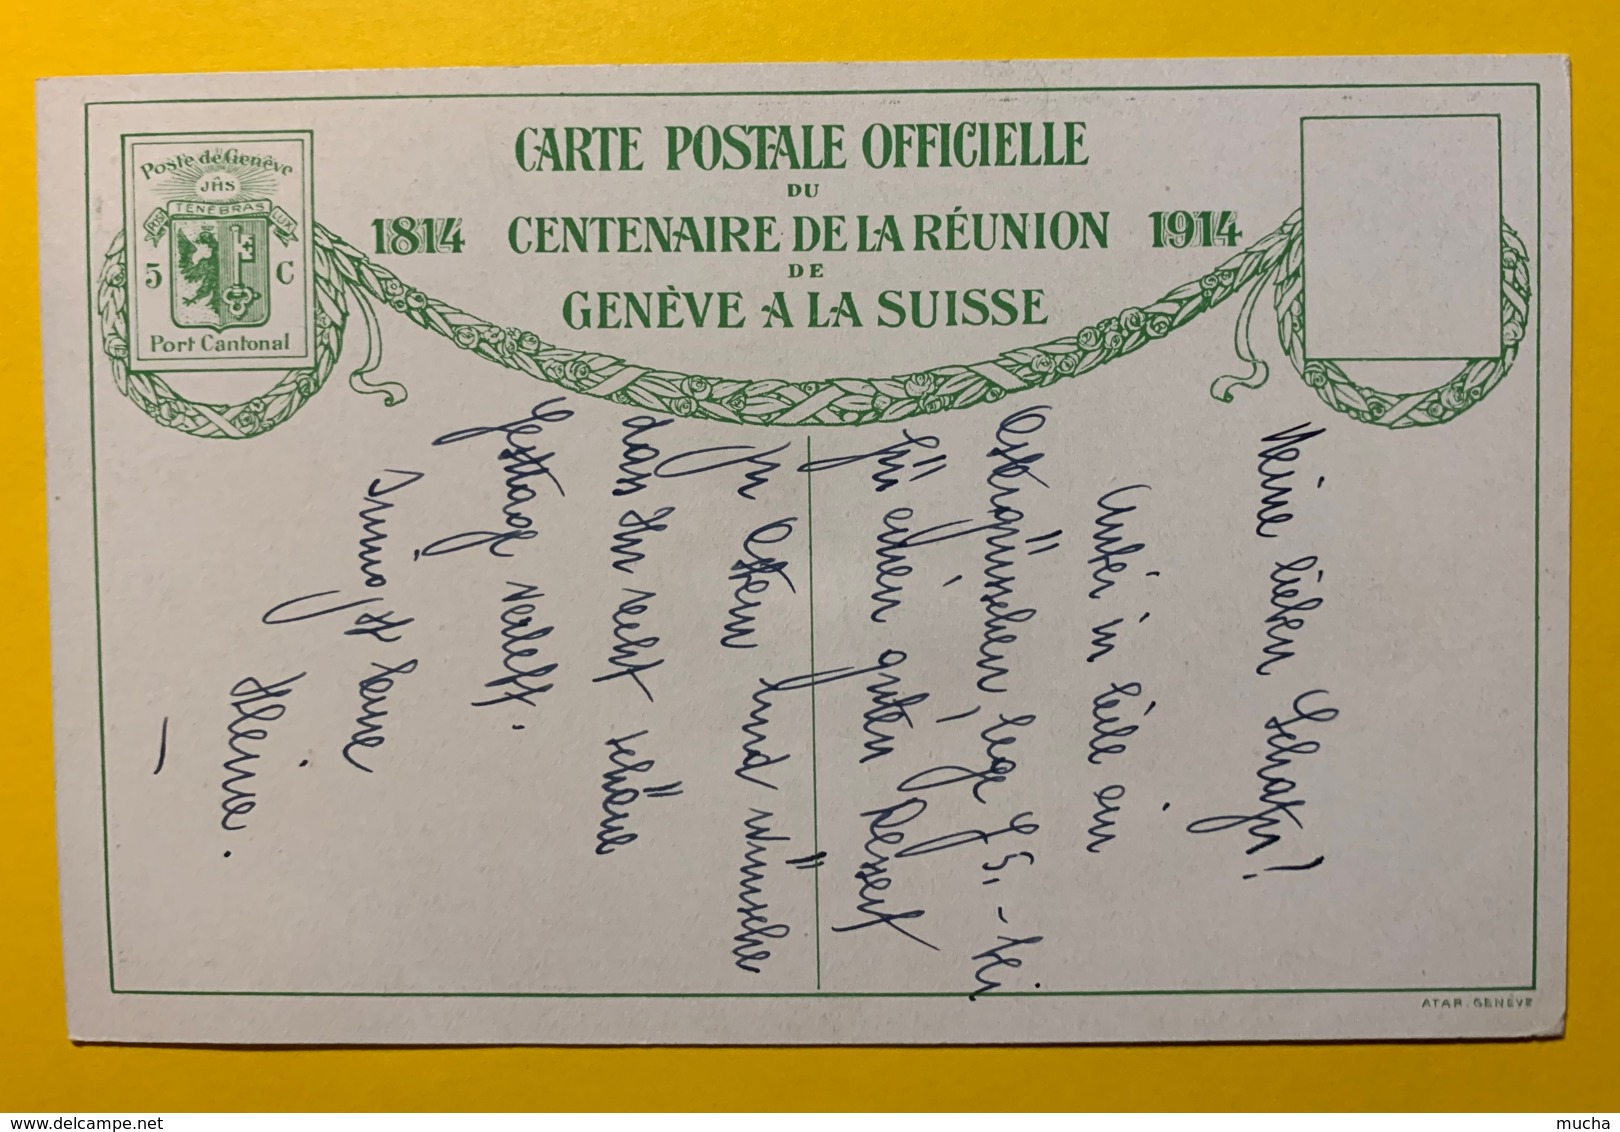 Poste de Genève
JHS
POST TENEBRAS LUX
5 C
Port Cantonal
CARTE POSTALE OFFICIELLE
DU
1814 CENTENAIRE DE LA RÉUNION 1914
DE
GENÈVE A LA SUISSE
Meine lieben Schatzi!
Anbei in Eile ein
Ostergrüsschen, lege Fr 5.- bei
für einen guten Dessert
zu Ostern und wünsche
dass Ihr recht schöne
Festtage verlebt.
Innigst Eure
Hena.
—
ATAR. GENÈVE
delcampe.net
mucha